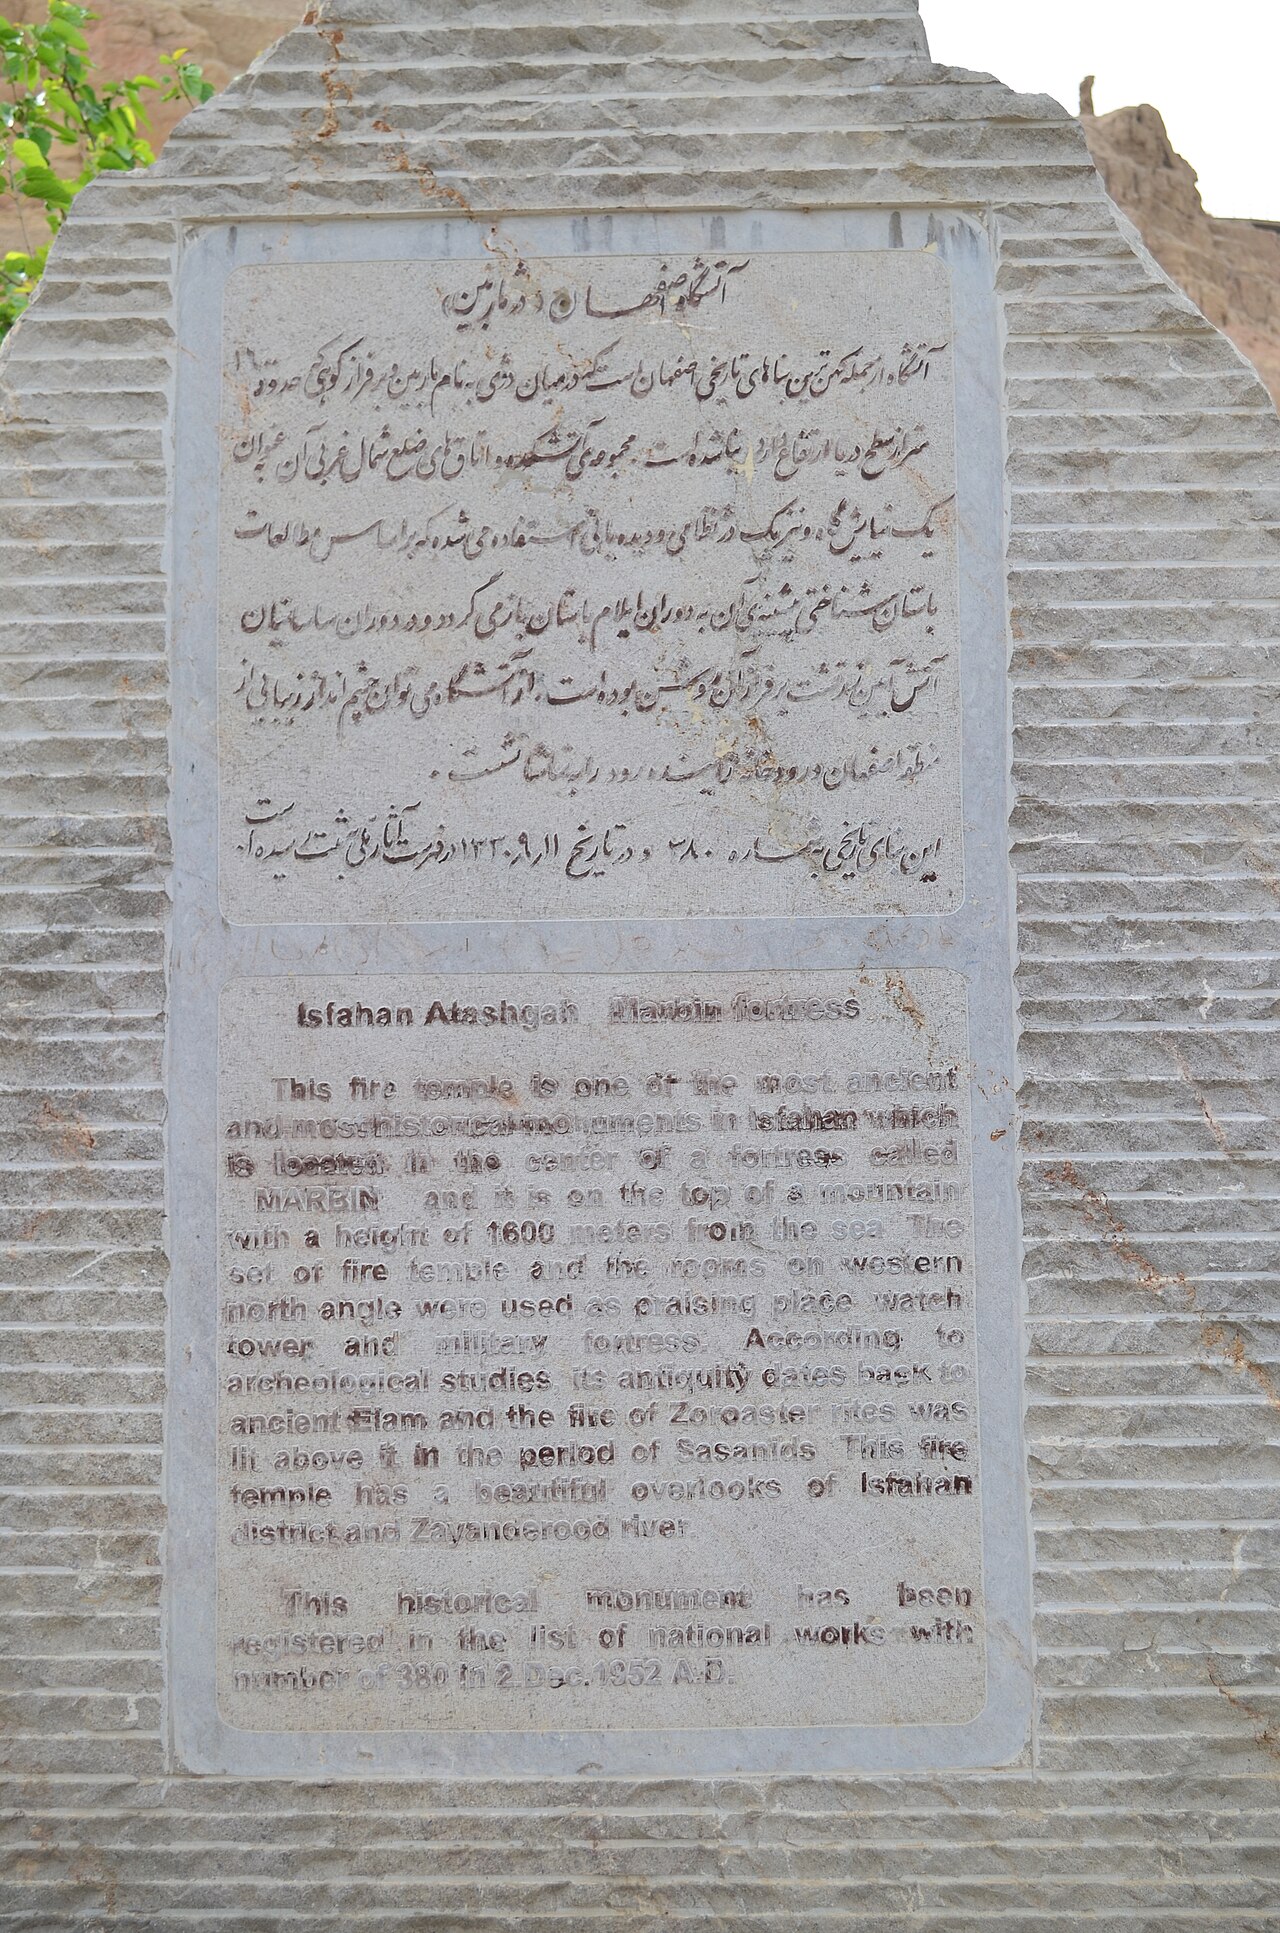 آتشگاه اصفهان (دژ ماربین)
آتشگاه از جمله کهن ترین بناهای تاریخی اصفهان است که در میان دژی به نام ماربین و بر فراز کوهی که حدود ۱۶۰۰
متر از سطح دریا ارتفاع دارد بنا شده است. مجموعه ی آتشکده و اتاق های ضلع شمال غربی آن به عنوان
یک نیایش گاه و نیز یک دژ نظامی و دیده بانی استفاده می شده که بر اساس مطالعات
باستان شناختی پیشینه ی آن به دوران ایلام باستان باز می گردد و در دوران ساسانیان
آتش آیین زرتشت بر فراز آن روشن بوده است. از آتشگاه می توان چشم انداز زیبایی از
منطقه اصفهان و رودخانه زاینده رود را به تماشا نشست.
این بنای تاریخی به شماره ۳۸۰ و در تاریخ ۱۳۳۰٫۹٫۱۱ در فهرست آثار ملی به ثبت رسیده است.
Isfahan Atashgah Marbin fortress
This fire temple is one of the most ancient
and most historical monuments in Isfahan which
is located in the center of a fortress called
MARBIN and it is on the top of a mountain
with a height of 1600 meters from the sea The
set of fire temple and the rooms on western
north angle were used as praising place watch
tower and military fortress. According to
archeological studies its antiquity dates back to
ancient Elam and the fire of Zoroaster rites was
lit above it in the period of Sasanids This fire
temple has a beautiful overlooks of Isfahan
district and Zayanderood river
This historical monument has been
registered in the list of national works with
number of 380 in 2.Dec.1952 A.D.